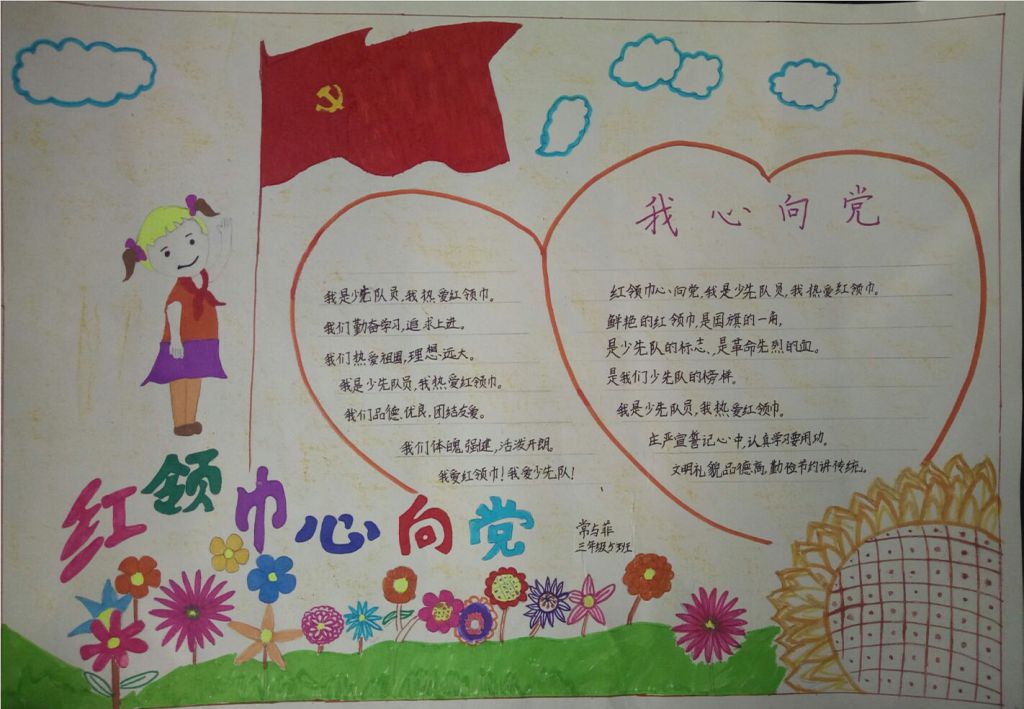 我心向党
我是少先队员,我热爱红领巾。
我们勤奋学习,追求上进。
我们热爱祖国,理想远大。
我是少先队员,我热爱红领巾。
我们品德优良,团结友爱。
我们体魄强健,活泼开朗。
我爱红领巾!我爱少先队!
红领巾心向党,我是少先队员,我热爱红领巾。
鲜艳的红领巾,是国旗的一角,
是少先队的标志、是革命先烈的血。
是我们少先队的榜样。
我是少先队员,我热爱红领巾。
庄严宣誓记心中,认真学习要用功。
文明礼貌品德高,勤俭节约讲传统。
红领巾心向党
常与菲
三年级5班